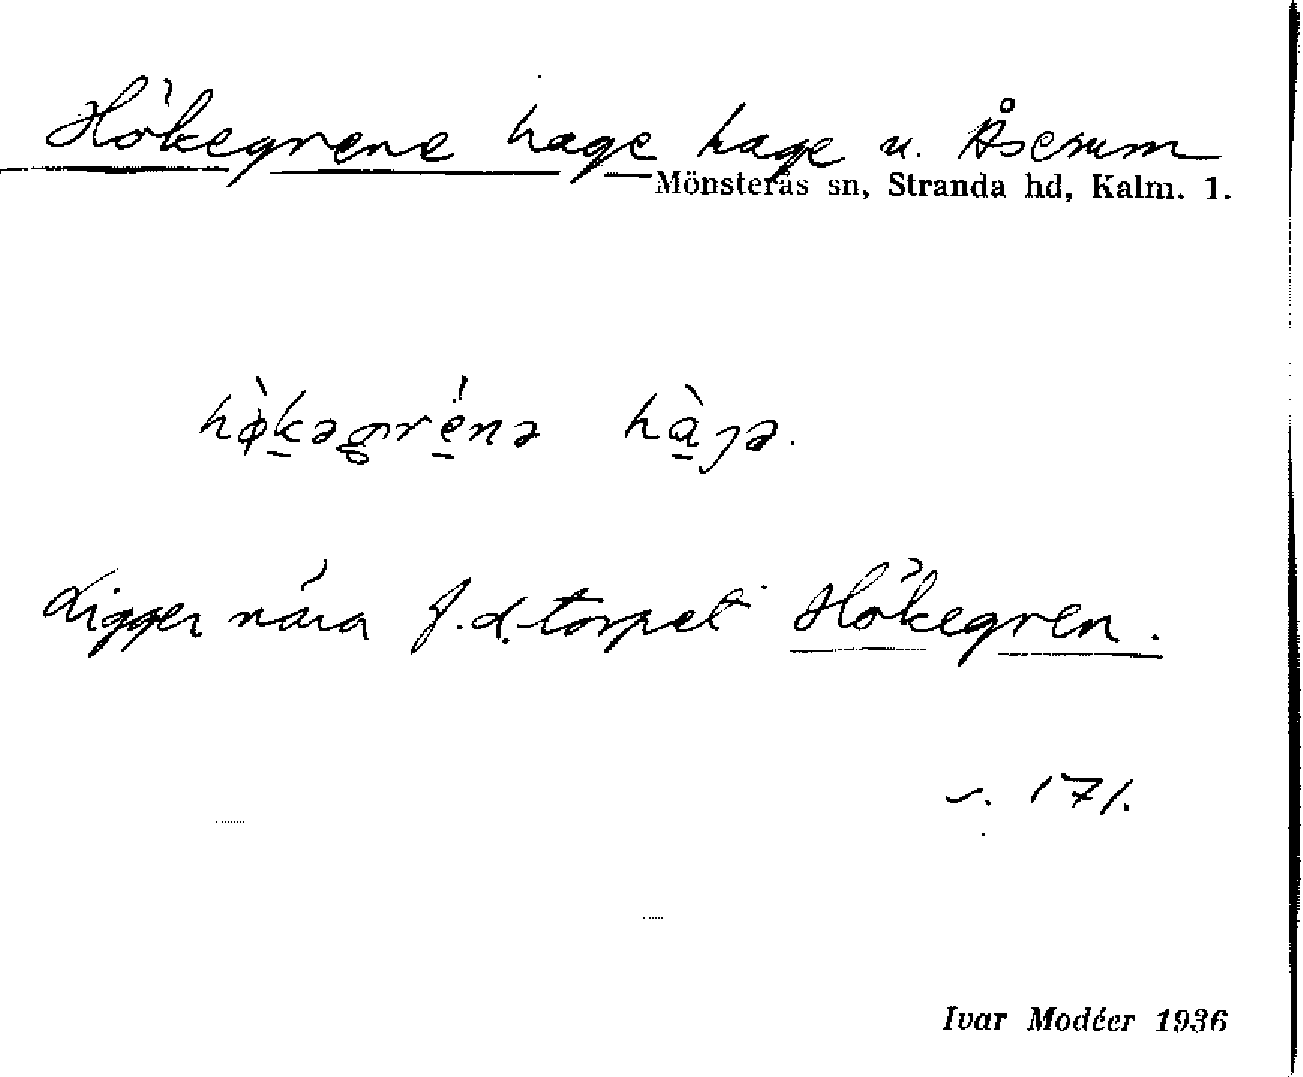 Hökegrene hage hage u. Åserum
Mönsterås sn, Stranda hd, Kalm. l.
hø̀kəgrénə hàgə.
Ligger nära f.d. torpet Hökegren.
s. 171.
Ivar Modéer 1936